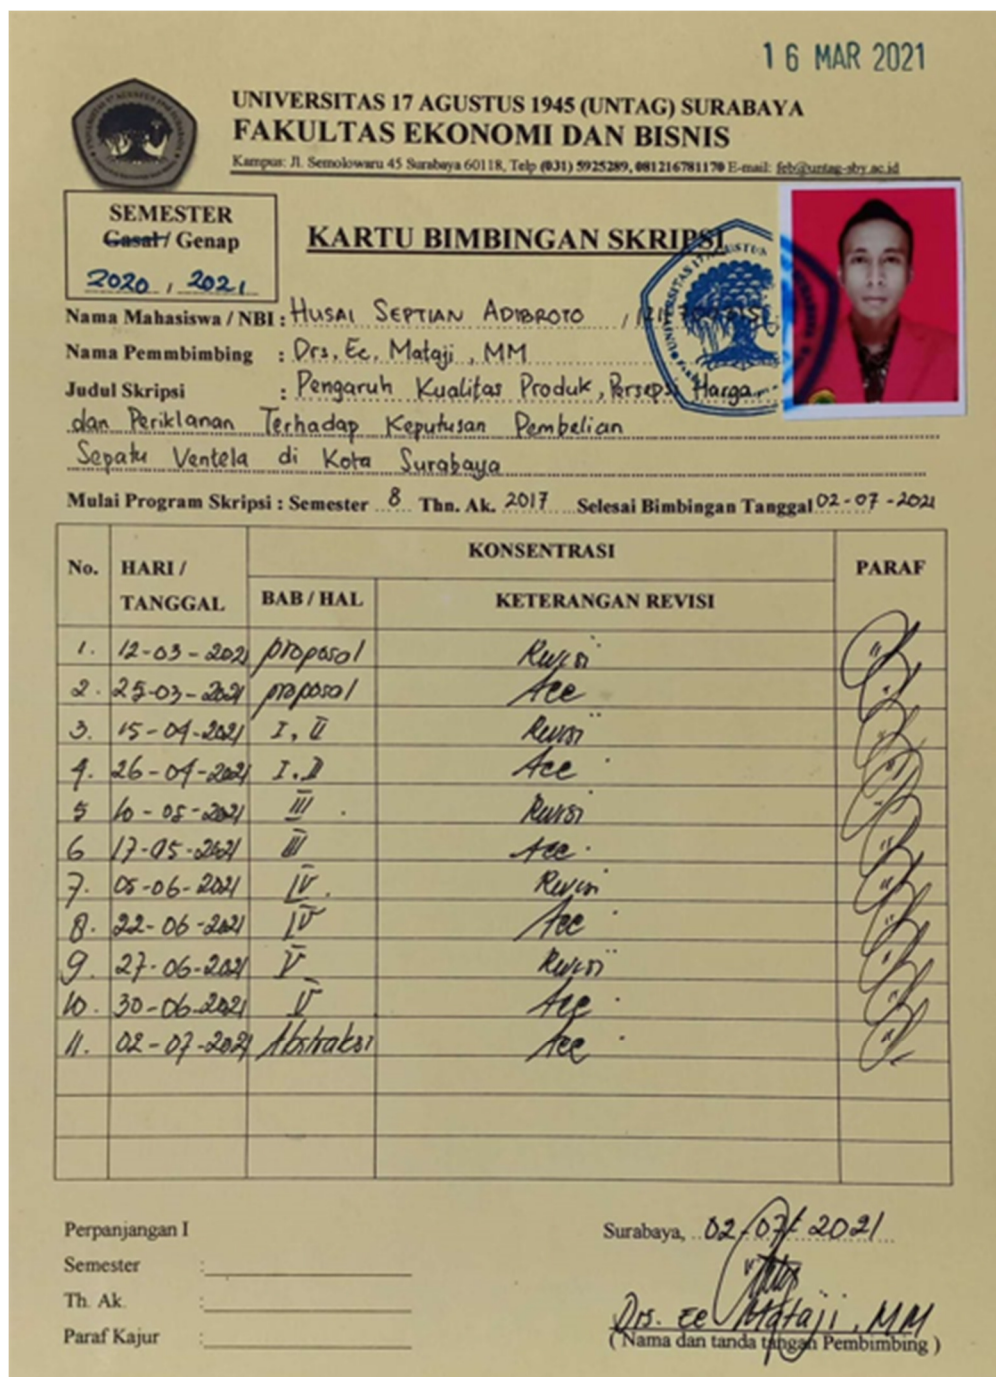 16 MAR 2021
UNIVERSITAS 17 AGUSTUS 1945 (UNTAG) SURABAYA
FAKULTAS EKONOMI DAN BISNIS
Kampus: Jl. Semolowaru 45 Surabaya 60118, Telp (031) 5925289, 081216781170 E-mail: feb@untag-sby.ac.id
SEMESTER
Gasal / Genap
2020, 2021
KARTU BIMBINGAN SKRIPSI
Nama Mahasiswa / NBI : HUSAI SEPTIAN ADIBROTO /
Nama Pemmbimbing : Drs. Ec. Mataji, MM
Judul Skripsi : Pengaruh Kualitas Produk, Persepsi Harga
dan Periklanan Terhadap Keputusan Pembelian
Sepatu Ventela di Kota Surabaya
Mulai Program Skripsi : Semester 8 Thn. Ak. 2017 Selesai Bimbingan Tanggal 02-07-2021
No. HARI / TANGGAL KONSENTRASI PARAF
BAB / HAL KETERANGAN REVISI
1. 12-03-2021 proposal Revisi
2. 25-03-2021 proposal Acc
3. 15-04-2021 I, II Revisi
4. 26-04-2021 I, II Acc
5 10-05-2021 III Revisi
6 17-05-2021 III Acc
7. 05-06-2021 IV Revisi
8. 22-06-2021 IV Acc
9. 27-06-2021 V Revisi
10. 30-06-2021 V Acc
11. 02-07-2021 Abstraksi Acc
Perpanjangan I
Semester :
Th. Ak. :
Paraf Kajur :
Surabaya, 02-07-2021
Drs. Ec Mataji, MM
( Nama dan tanda tangan Pembimbing )